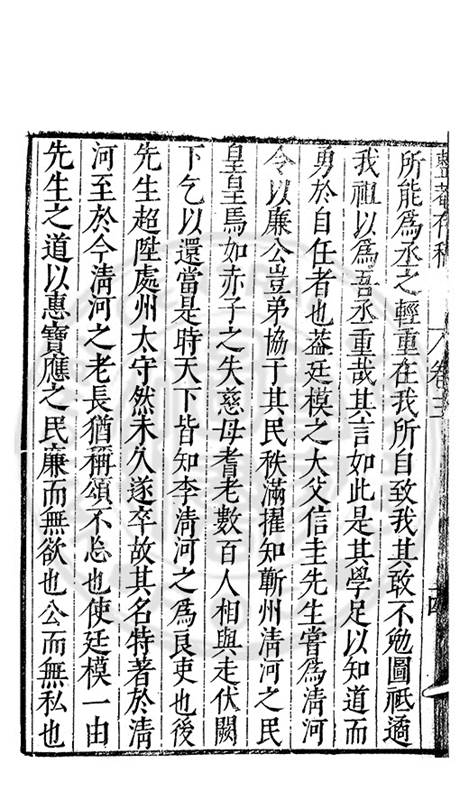 整菴存稿 卷三 十四
所能爲丞之輕重在我所自致我其敢不勉圖祗適
我祖以爲吾丞重哉其言如此是其學足以知道而
勇於自任者也葢廷模之大父信圭先生嘗爲清河
令以廉公豈弟協于其民秩滿擢知蘄州清河之民
皇皇焉如赤子之失慈母耆老數百人相與走伏闕
下乞以還當是時天下皆知李清河之爲良吏也後
先生超陞處州太守然未久遂卒故其名特著於清
河至於今清河之老長猶稱頌不忘也使廷模一由
先生之道以惠寶應之民廉而無欲也公而無私也